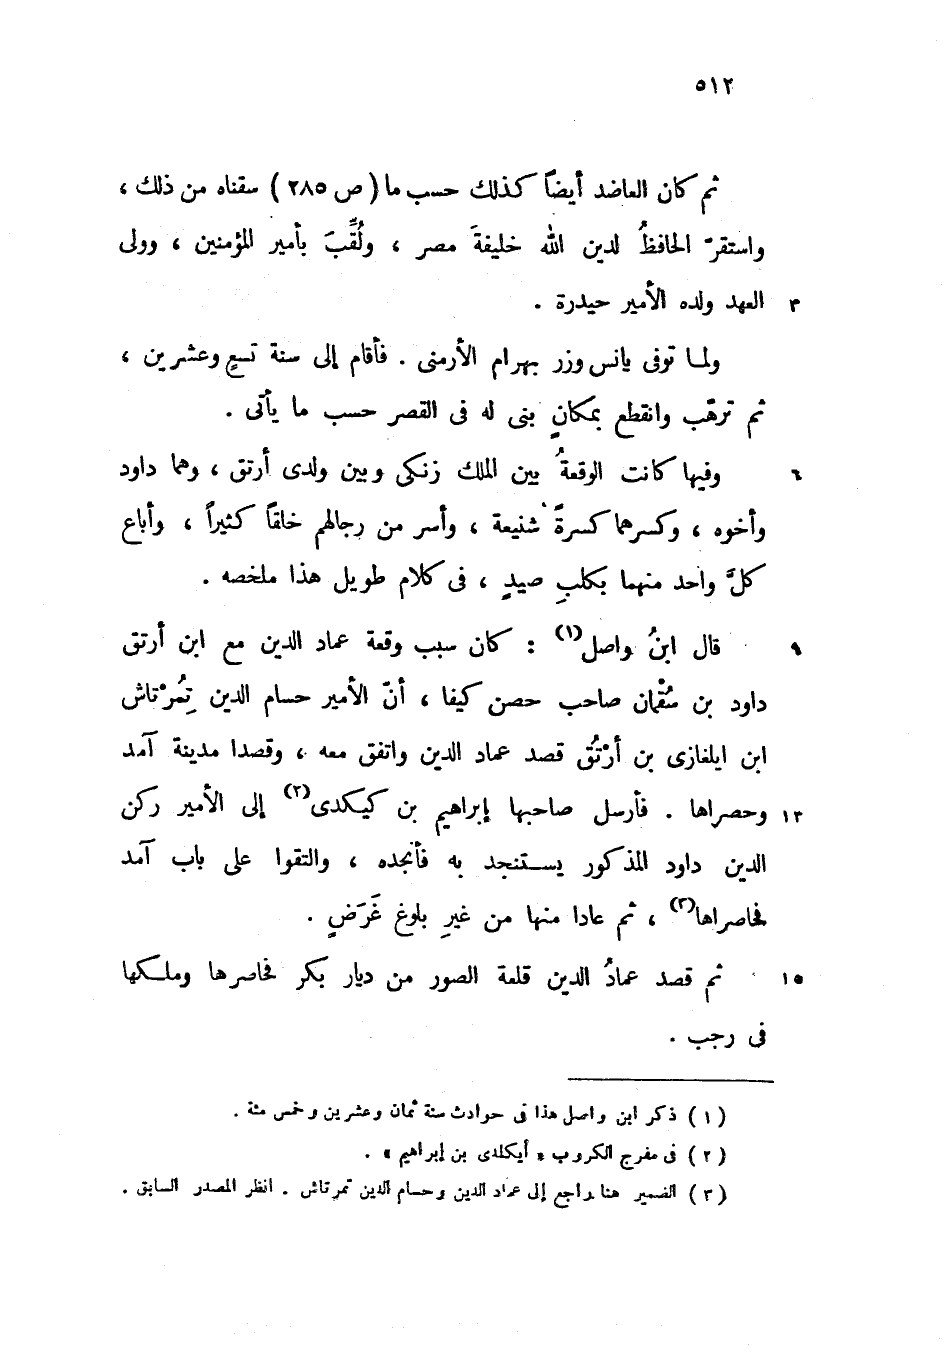 ٥١٢
ثم كان العاضد أيضاً كذلك حسب ما (ص ٢٨٥) سقناه من ذلك ،
واستقرّ الحافظُ لدين الله خليفةَ مصر ، ولُقِّبَ بأمير المؤمنين ، وولى
٣ العهد ولده الأمير حيدرة .
ولما توفى يانس وزر بهرام الأرمنى . فأقام إلى سنة تسعٍ وعشرين ،
ثم ترهّب وانقطع بمكانٍ بنى له فى القصر حسب ما يأتى .
٦ وفيها كانت الوقعةُ بين الملك زنكى وبين ولدى أرتق ، وهما داود
وأخوه ، وكسرهما كسرةً شنيعة ، وأسر من رجالهم خلقاً كثيراً ، وأباع
كلَّ واحد منهما بكلبِ صيدٍ ، فى كلام طويل هذا ملخصه .
٩ قال ابنُ واصل(١) : كان سبب وقعة عماد الدين مع ابن أرتق
داود بن سُقْمان صاحب حصن كيفا ، أنّ الأمير حسام الدين تِمُرْتاش
ابن ايلغازى بن أرْتُق قصد عماد الدين واتفق معه ، وقصدا مدينة آمد
١٢ وحصراها . فأرسل صاحبها إبراهيم بن كيكدى(٢) إلى الأمير ركن
الدين داود المذكور يستنجد به فأنجده ، والتقوا على باب آمد
فحاصراها(٣) ، ثم عادا منها من غيرِ بلوغ غَرَضٍ .
١٥ ثم قصد عمادُ الدين قلعة الصور من ديار بكر فحاصرها وملكها
فى رجب .
(١) ذكر ابن واصل هذا فى حوادث سنة ثمان وعشرين وخمس مئة .
(٢) فى مفرج الكروب « أيكلدى بن إبراهيم » .
(٣) الضمير هنا راجع إلى عماد الدين وحسام الدين تمرتاش . انظر المصدر السابق .